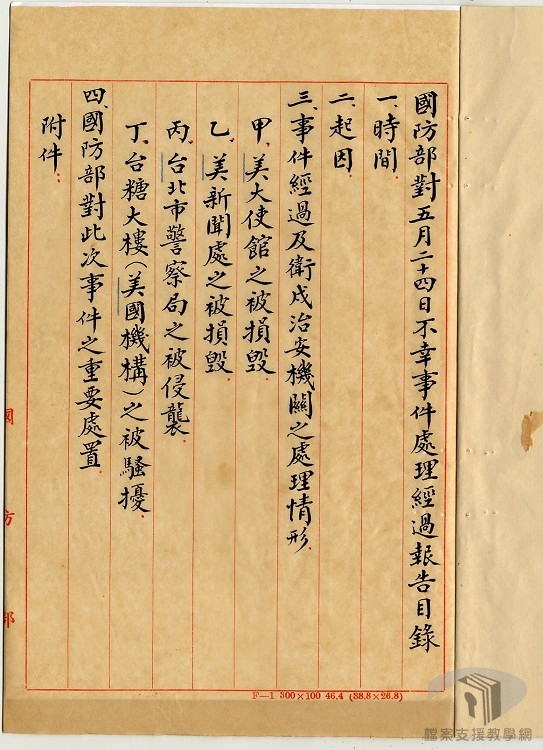 國防部對五月二十四日不幸事件處理經過報告目錄
一、時間.
二、起因.
三、事件經過及衛戍治安機關之處理情形.
甲、美大使館之被損毀.
乙、美新聞處之被損毀.
丙、台北市警察局之被侵襲.
丁、台糖大樓(美國機構)之被騷擾.
四、國防部對此次事件之重要處置.
附件:
國防部
F—1 300×100 46.4 (38.8×26.8)
檔案支援教學網